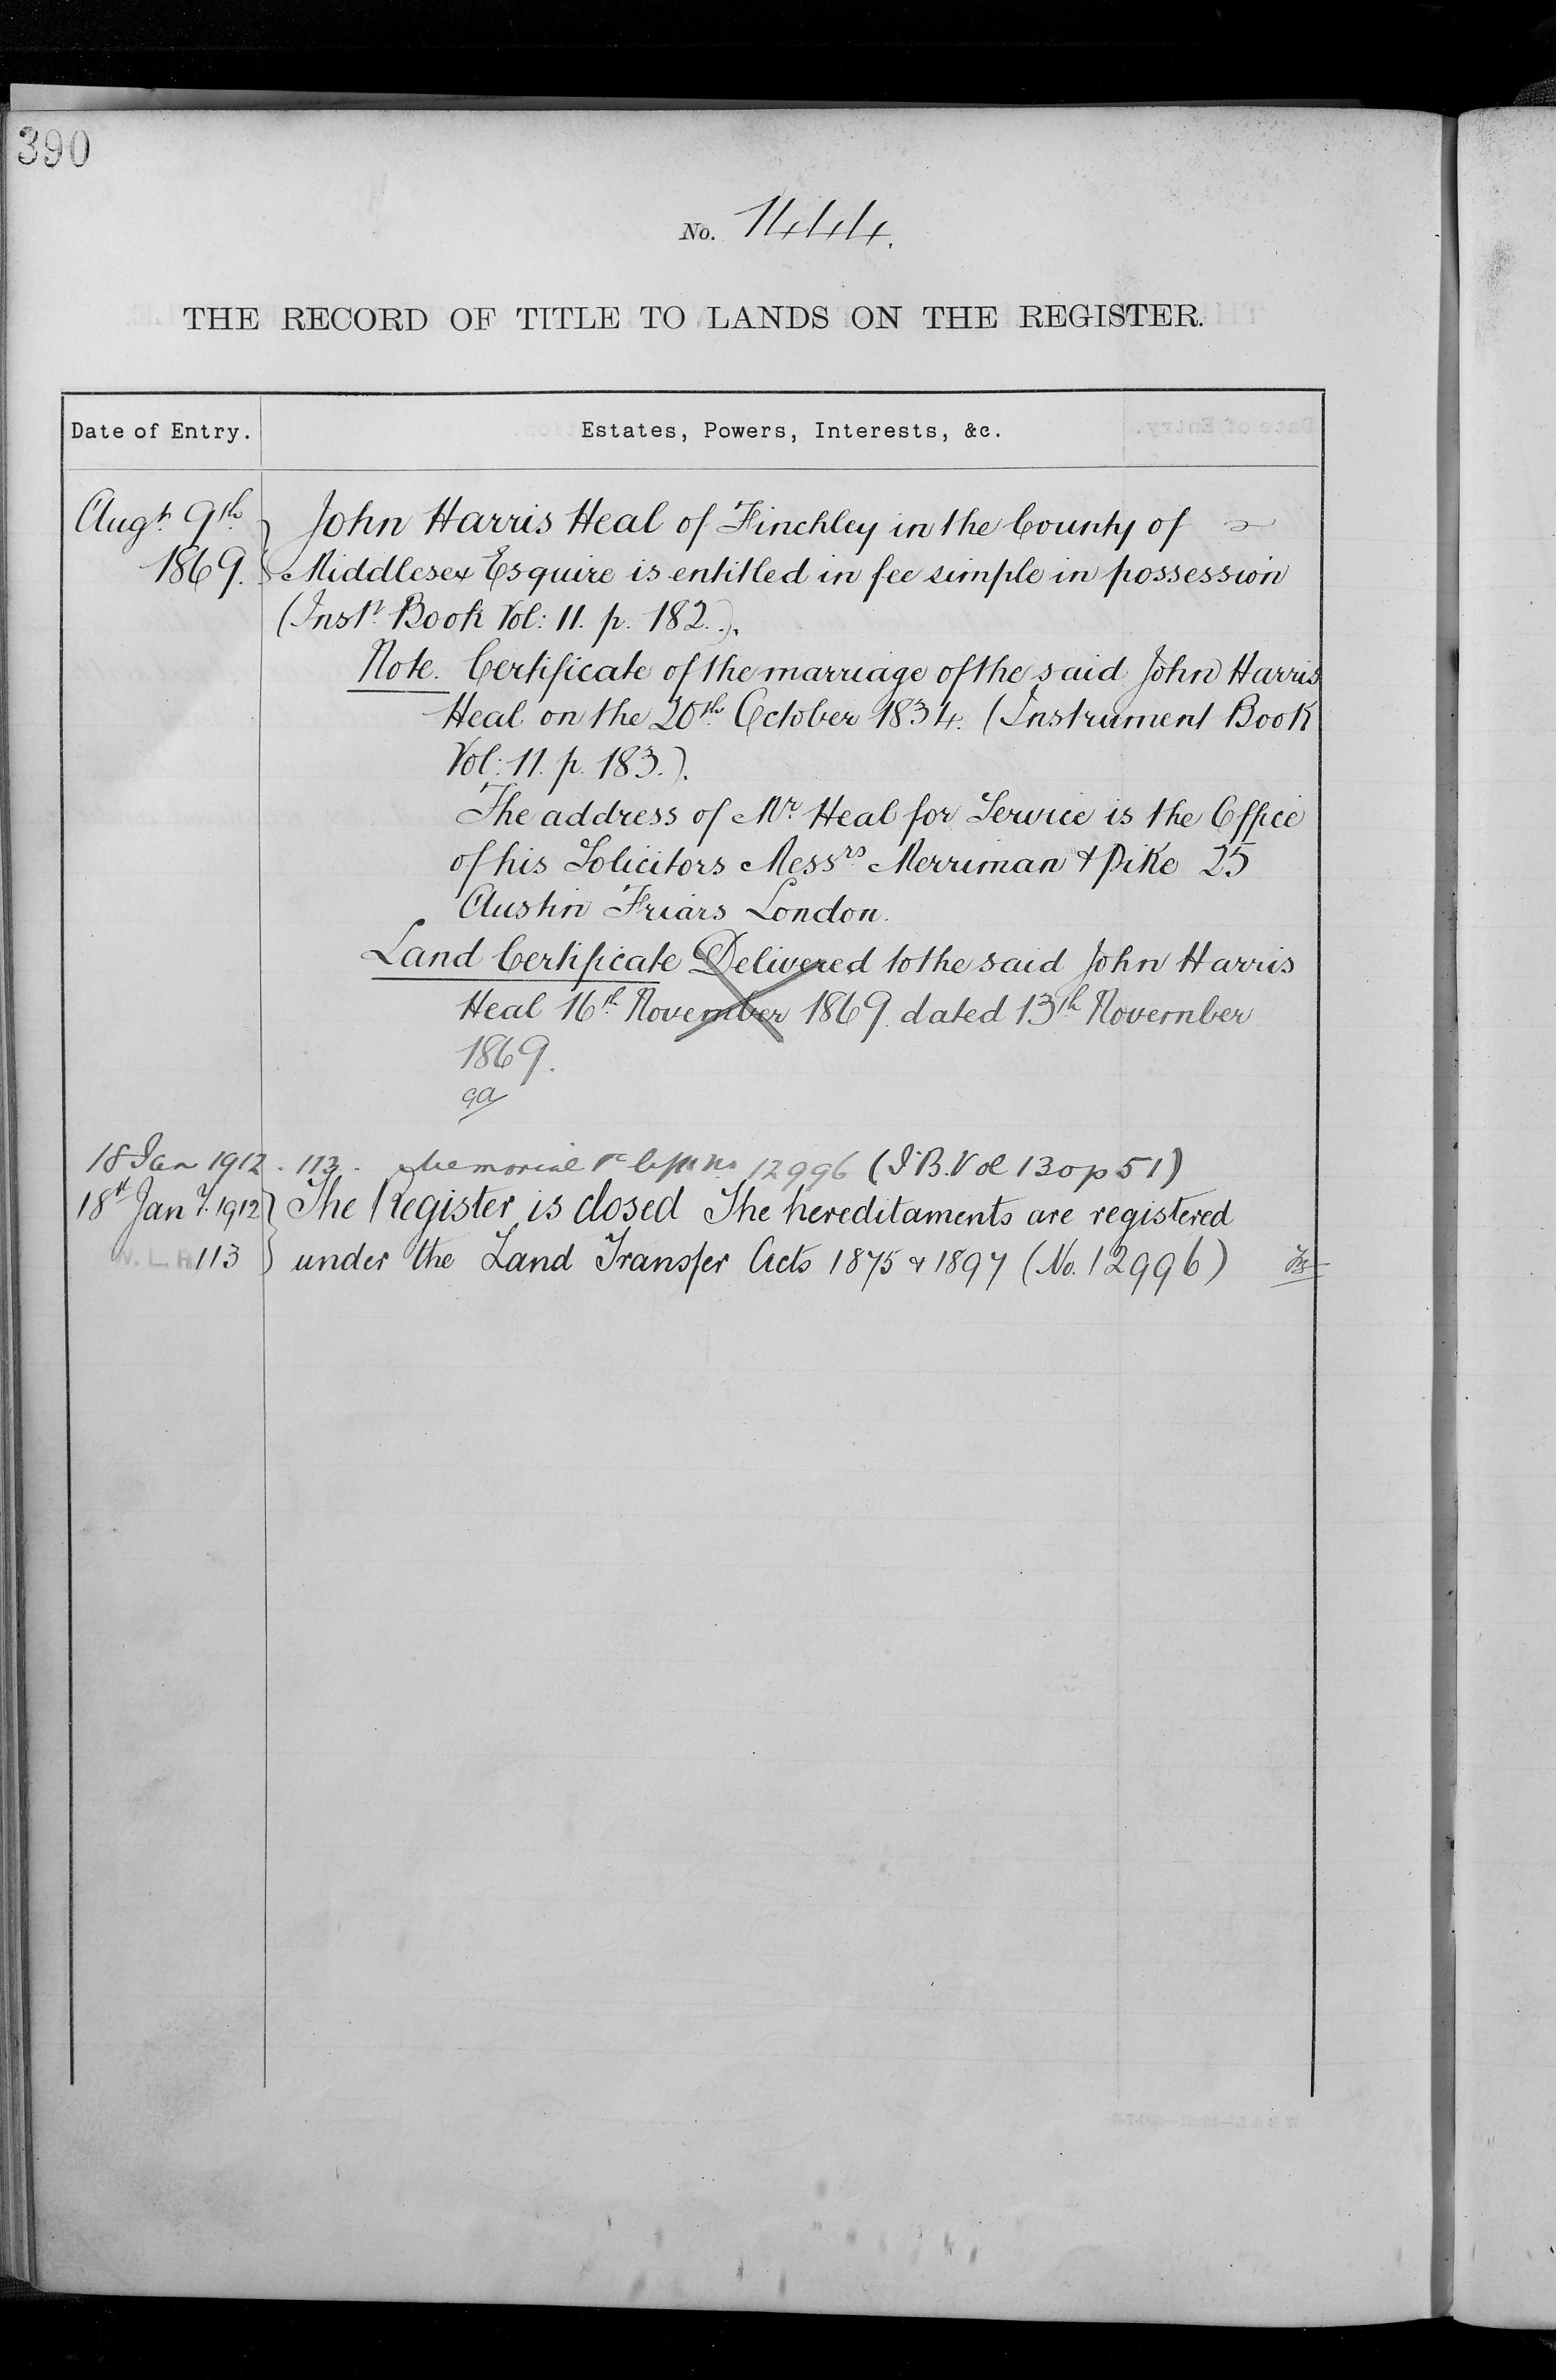 390
No. 1444.
THE RECORD OF TITLE TO LANDS ON THE REGISTER.
Date of Entry. Estates, Powers, Interests, &c.
Augt. 9th John Harris Heal of Finchley in the County of
1869. Middlesex Esquire is entitled in fee simple in possession
(Inst. Book Vol: 11. p. 182.).
Note. Certificate of the marriage of the said John Harris
Heal on the 20th October 1834. (Instrument Book
Vol: 11. p. 183.).
The address of Mr Heal for Service is the Office
of his Solicitors Messrs Merriman & Pike 25
Austin Friars London.
Land Certificate Delivered to the said John Harris
Heal 16th November 1869 dated 13th November
1869.
18 Jan 1912. 113. Memorial No 12996 (I.B. Vol 130 p 51)
18th Jany. 1912 The Register is closed The hereditaments are registered
113 under the Land Transfer Acts 1875 & 1897 (No. 12996)